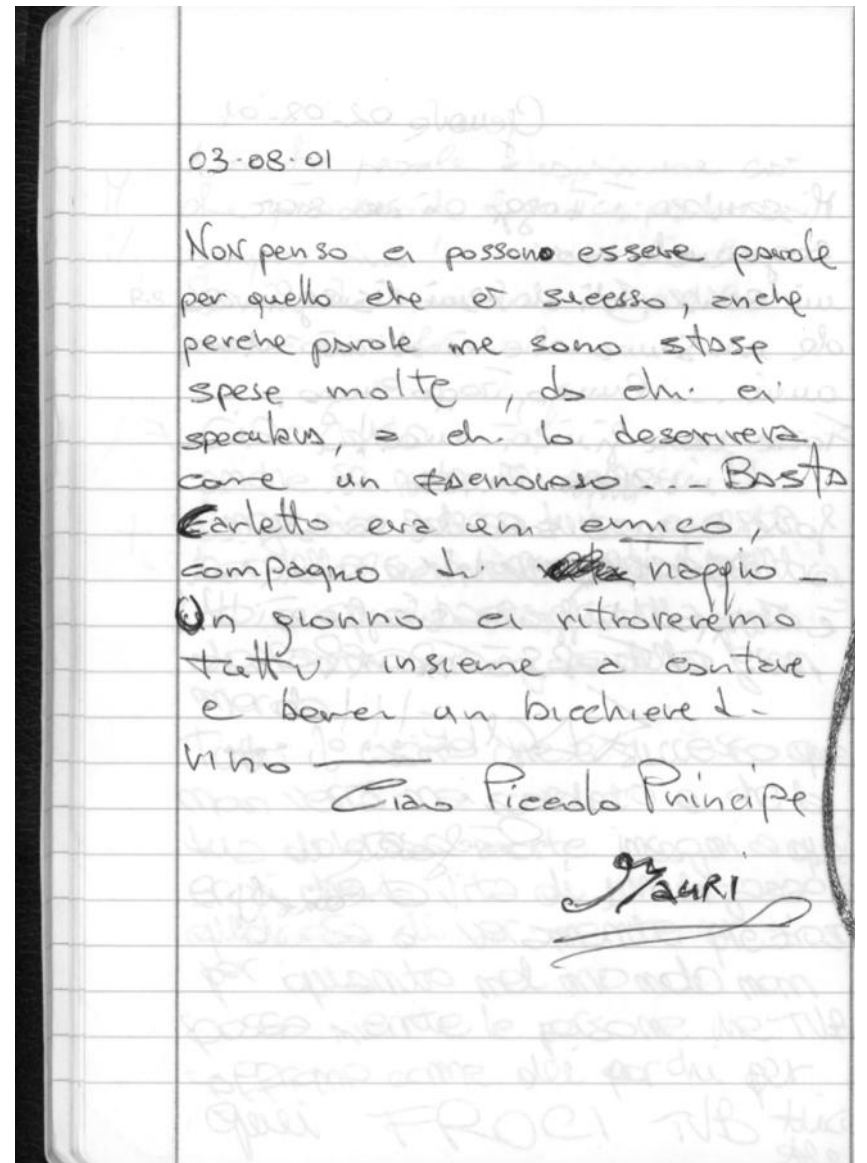 03-08-01
Non penso ci possono essere parole
per quello che è sucesso, anche
perche parole me sono stase
spese molte, da chi ci
speculava, a chi lo descriveva
come un facinoroso... Basta
Carletto era um amico,
compagno di viaggio -
Un giorno ci ritroveremo
tutti insieme a cantare
e berci un bicchiere di
vino
Ciao Piccolo Principe
Mauri